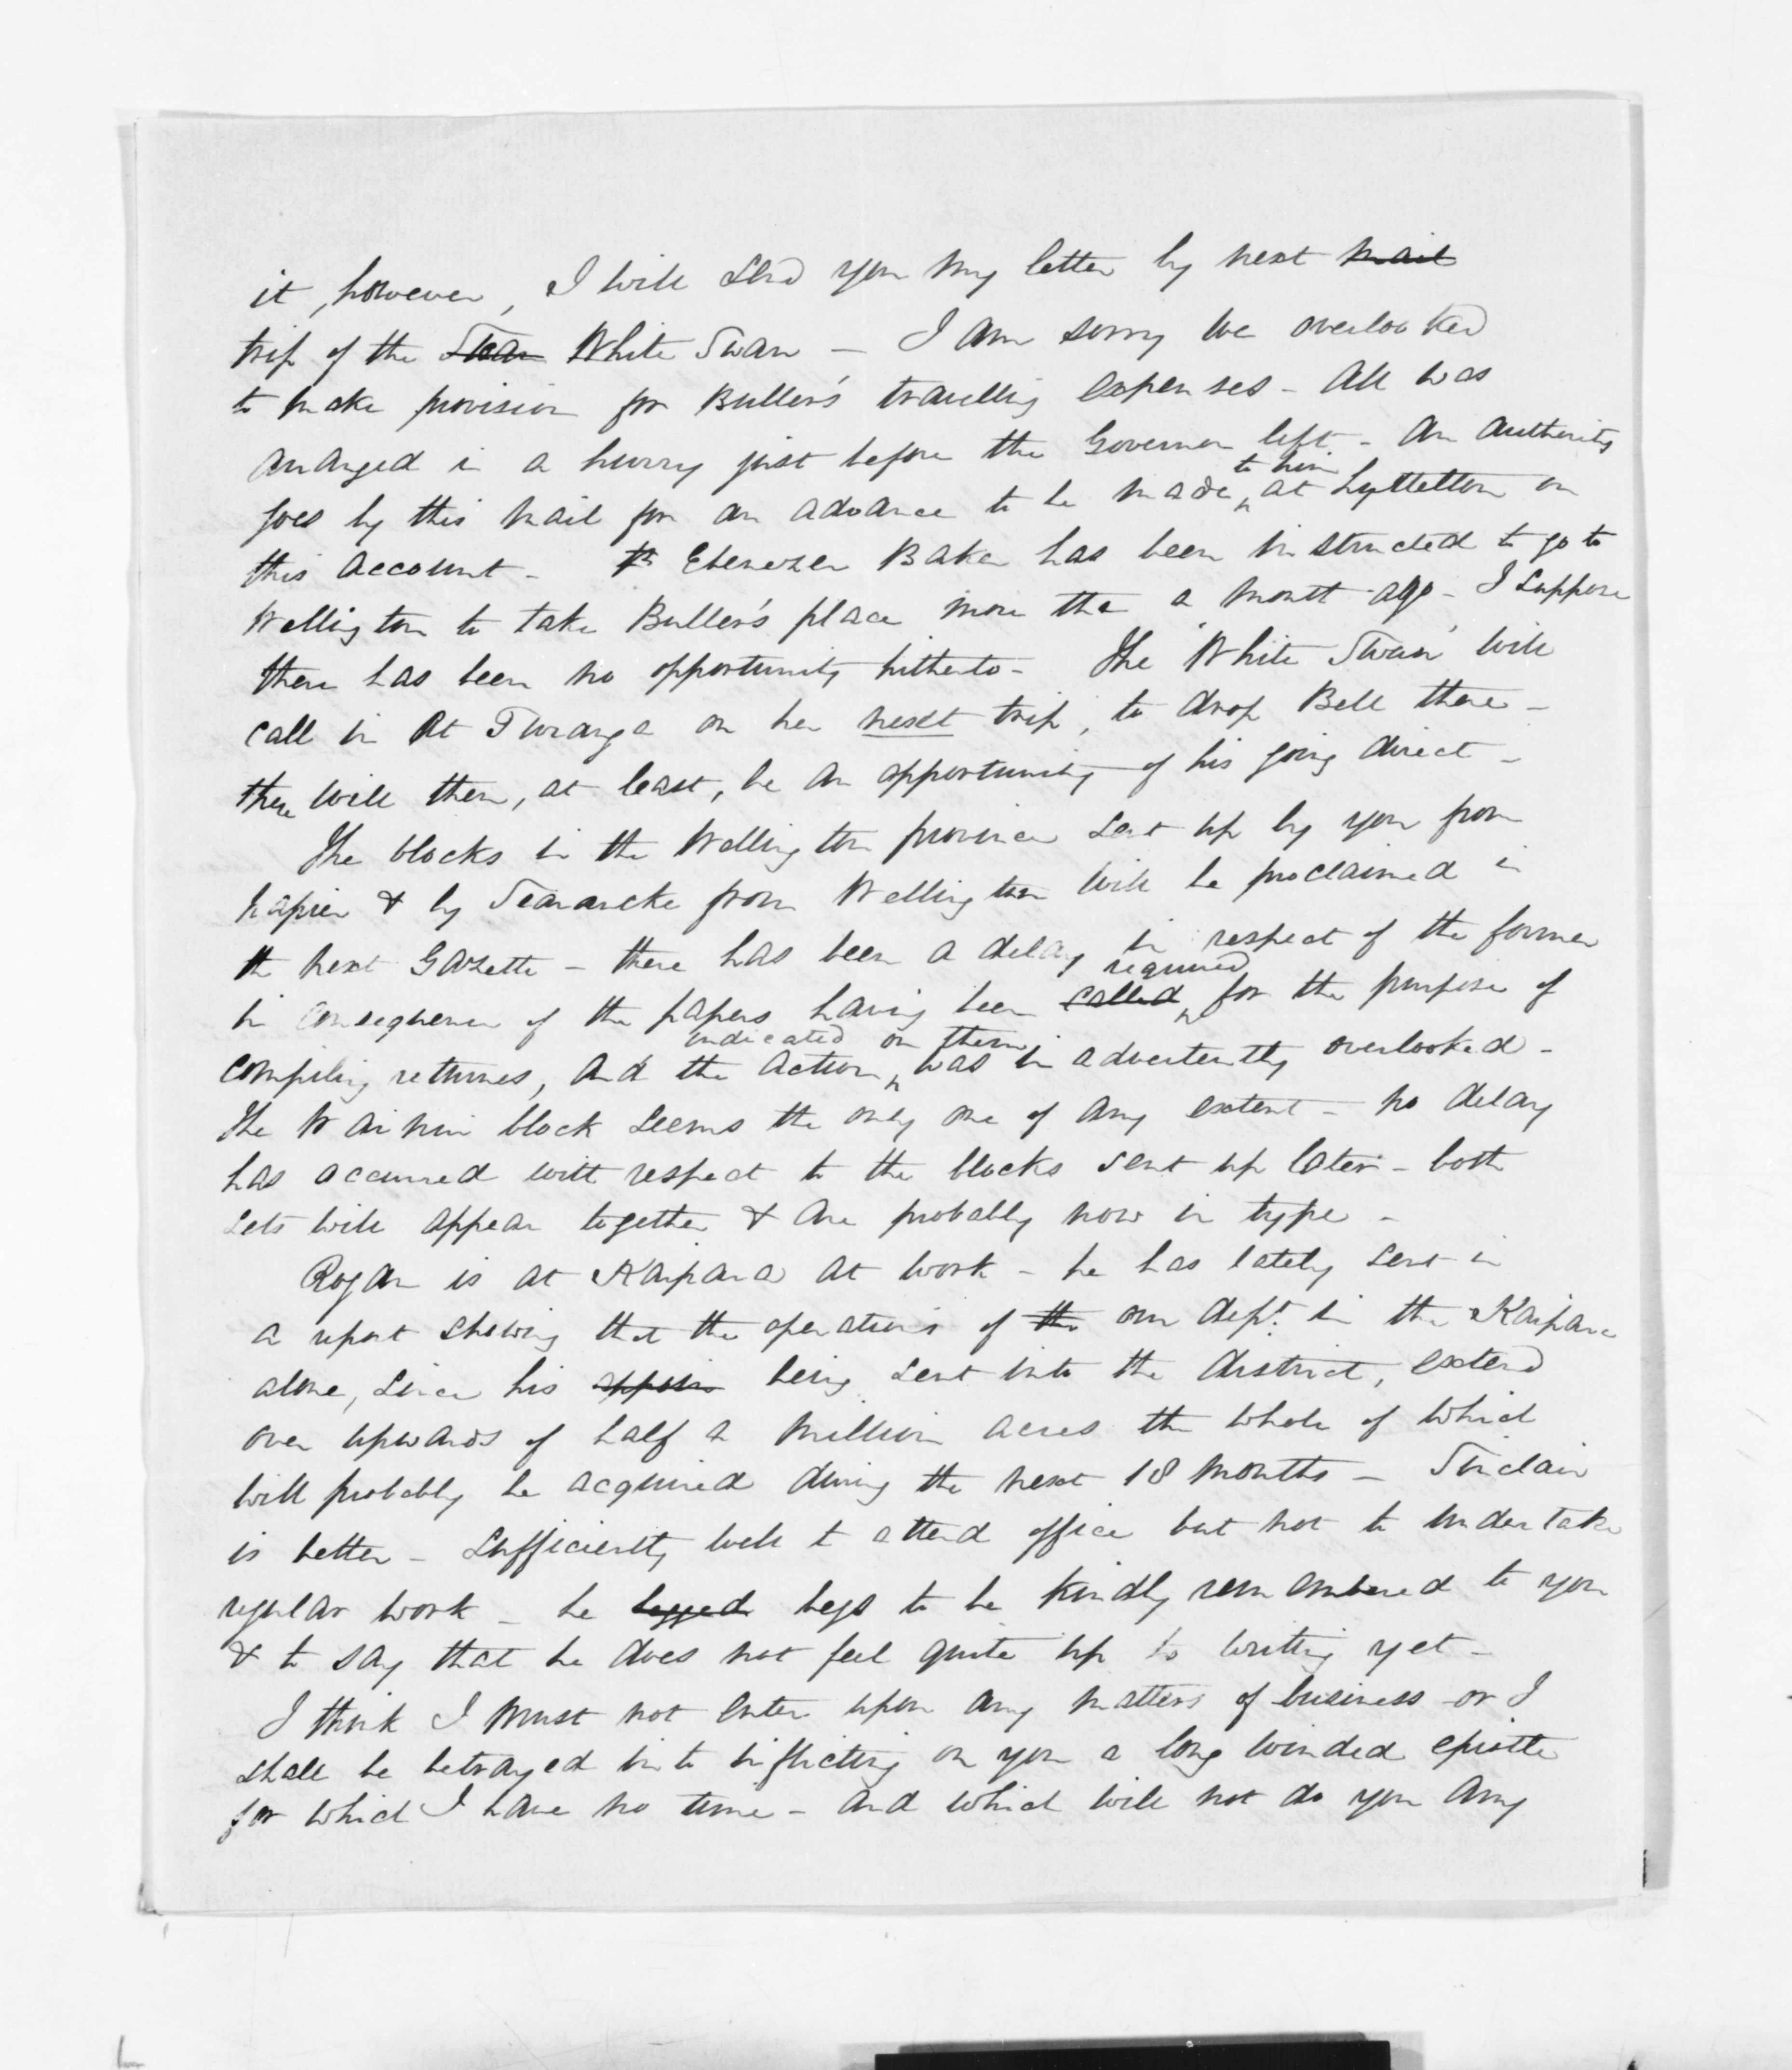 it, however, I will send you my letter by next mail
trip of the Swan White Swan — I am sorry we overlooked
to make provision for Buller's travelling expenses — All was
arranged in a hurry just before the Governor left — An authority
to him
goes by this mail for an advance to be made at Lyttelton on
this account — Ebenezer Baker has been instructed to go to
Wellington to take Buller's place more tha a month ago — I suppose
there has been no opportunity hitherto — The 'White Swan' will
call in at Turanga on her next trip, to drop Bell there —
there will then, at least, be an opportunity of his going direct —
The blocks in the Wellington province sent up by you from
Napier & by Searancke from Wellington will be proclaimed in
the next Gazette — there has been a delay in respect of the former
required
in consequence of the papers having been called for the purpose of
indicated on them
compiling returns, and the action was inadvertently overlooked —
The Wainui block seems the only one of any extent — no delay
has occurred with respect to the blocks sent up later — both
sets will appear together & are probably now in type —
Rogan is at Kaipara at work — he has lately sent in
a report shewing that the operations of the our dept. in the Kaipara
alone, since his appoin being sent into the district, extend
over upwards of half a million acres the whole of which
will probably be acquired during the next 18 months — Sinclair
is better — sufficiently well to attend office but not to undertake
regular work — he begged begs to be kindly remembered to you
& to say that he does not feel quite up to writing yet —
I think I must not enter upon any matters of business or I
shall be betrayed into inflicting on you a long winded epistle
for which I have no time — and which will not do you any